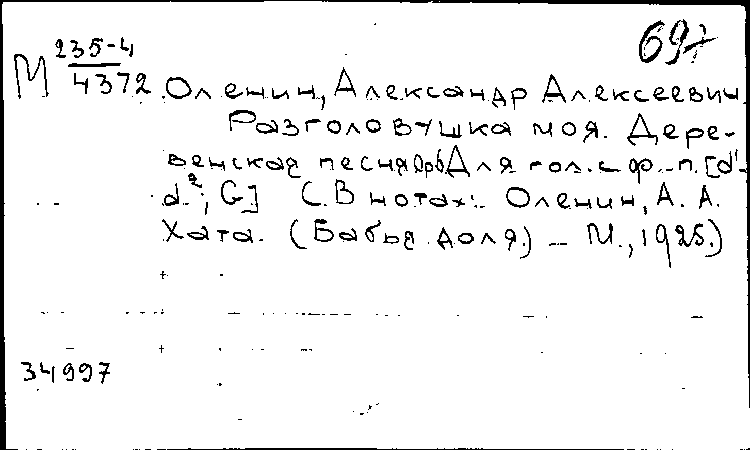 697
М 235-4
4372 Оленин, Александр Алексеевич.
Разголовушка моя. Дере-
венская песня Для гол. с ф.-п. [d¹-
d²; G] (В нотах: Оленин, А. А.
Хата. (Бабья доля.) — М., 1925.)
34997